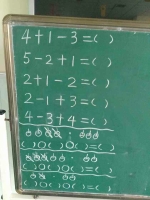 4+1-3=( )
5-2+1=( )
2+1-2=( )
2-1+3=( )
4-3+4=( )
( )○( )○( )=( )
( )○( )○( )=( )
( )○( )○( )=( )